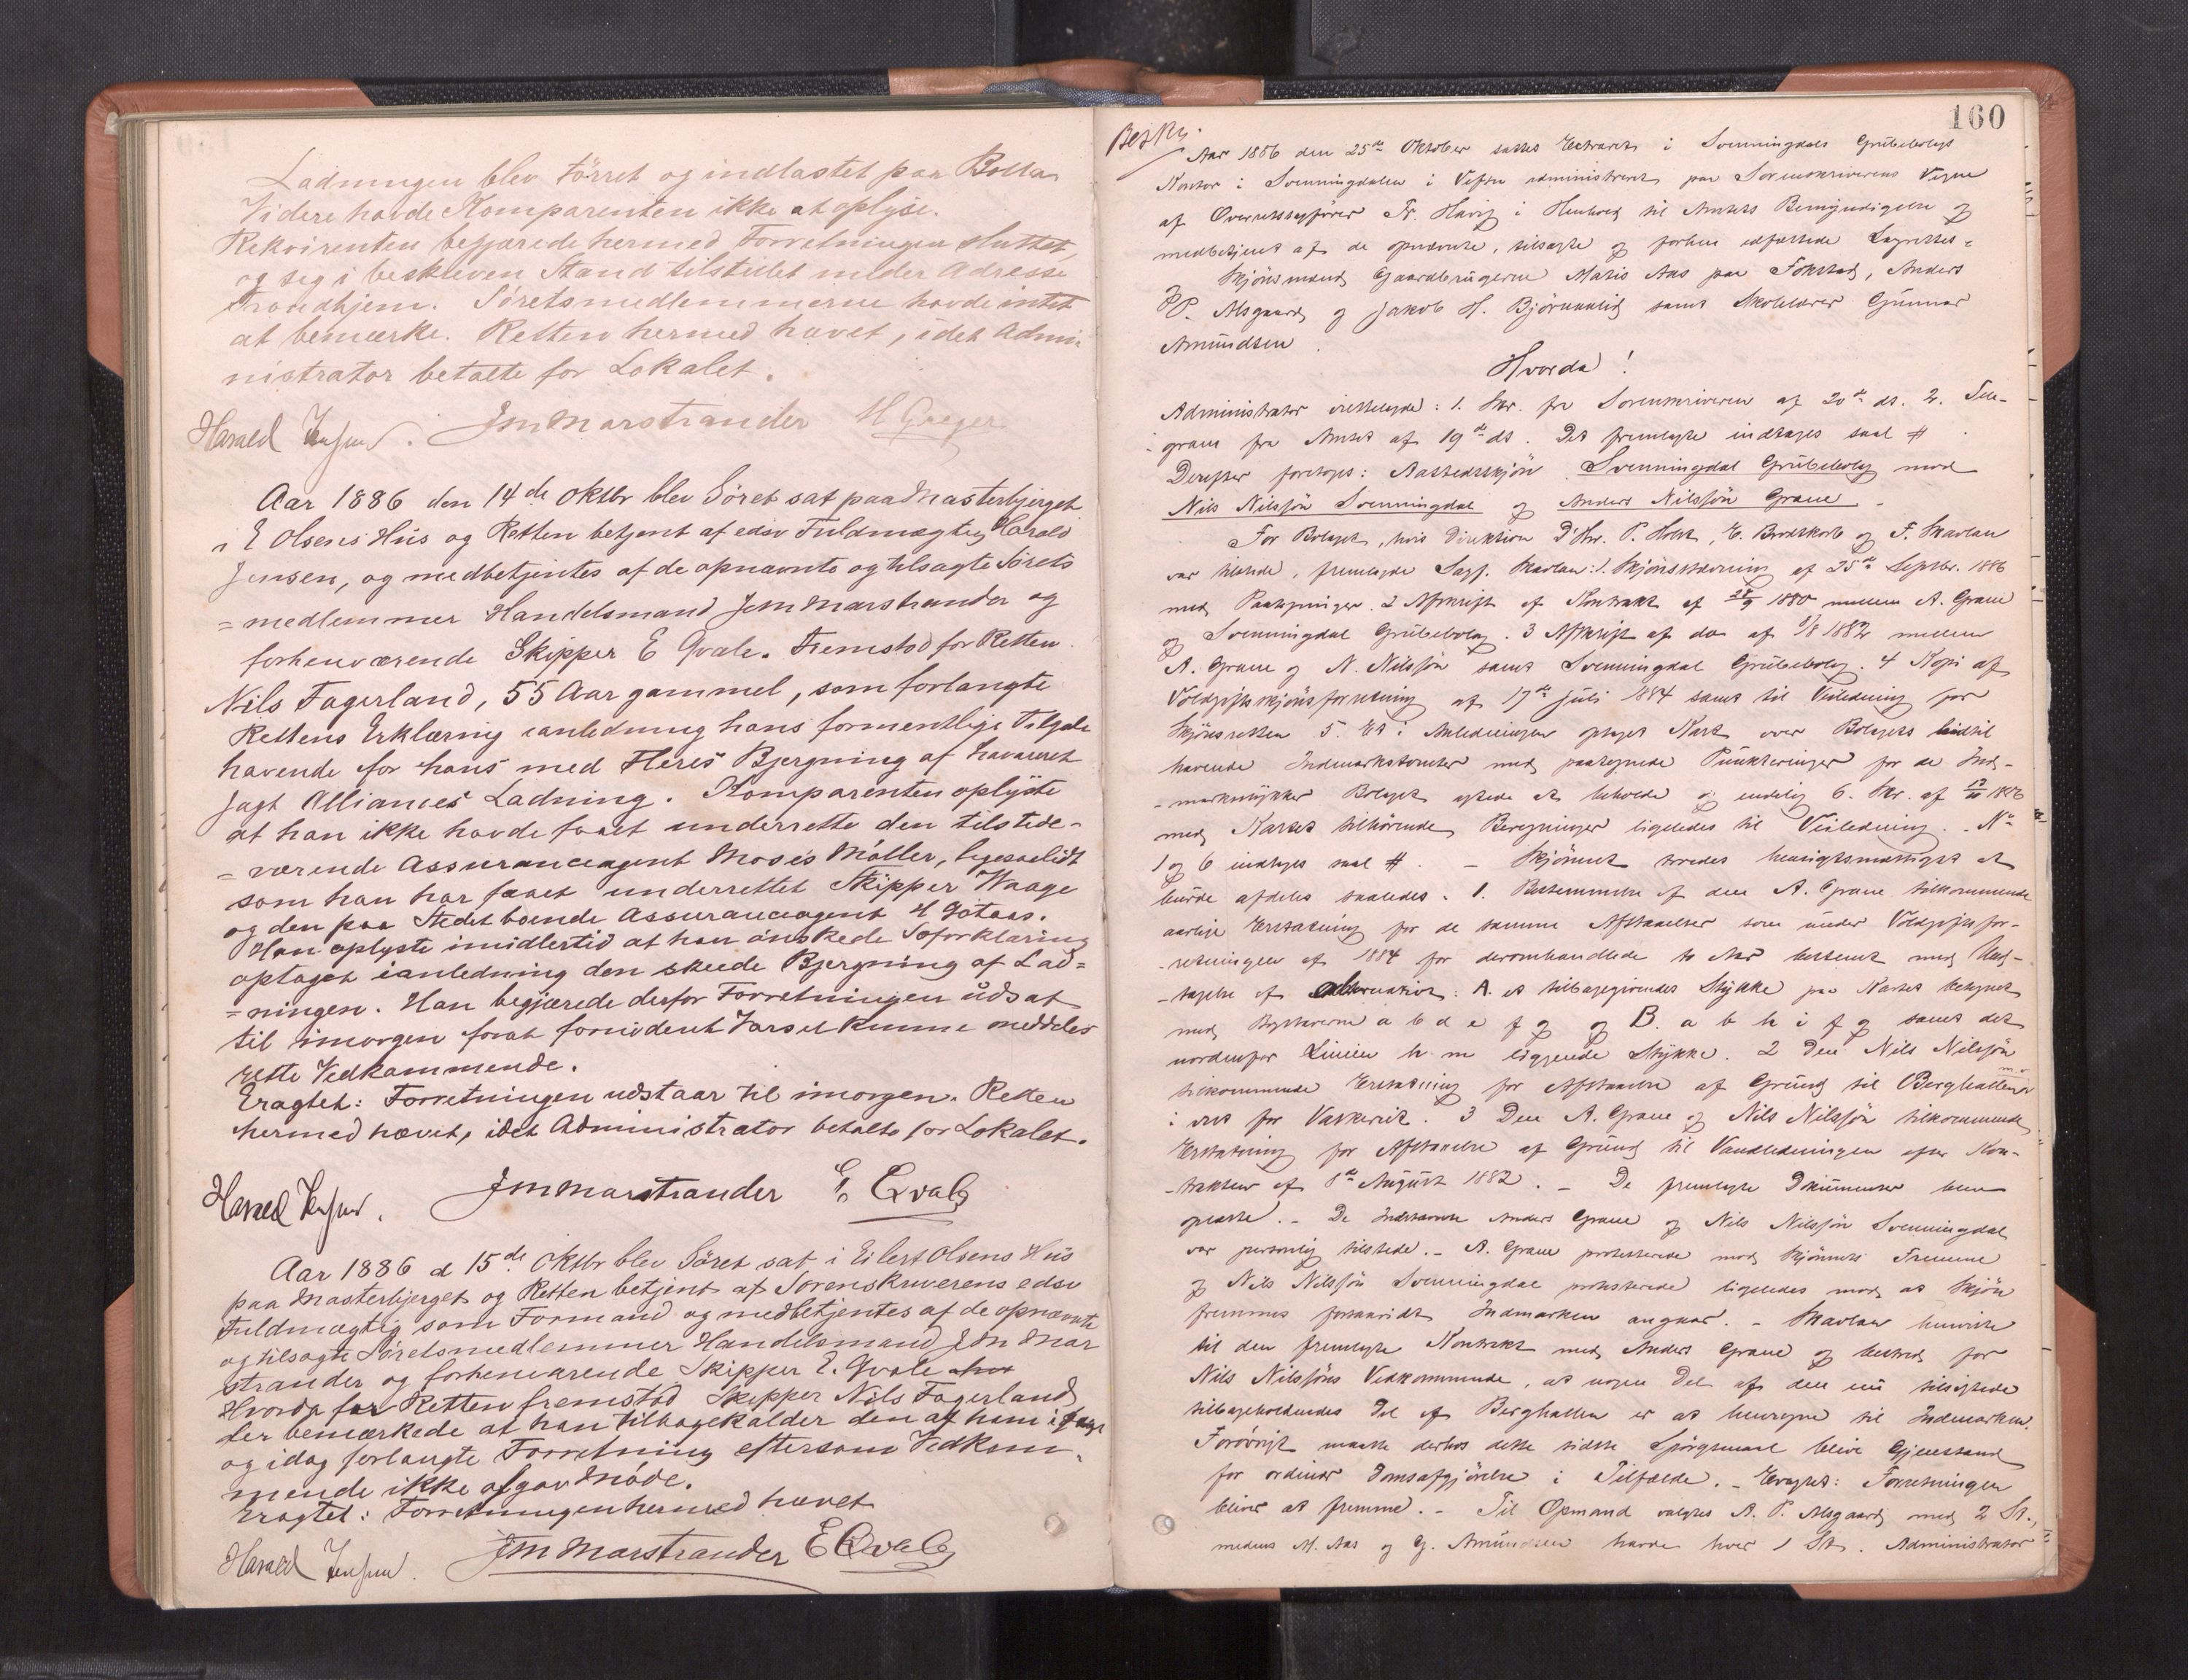 Ladningen blev tørret og indlastet paa Bolka
Videre havde Komparenten ikke at oplyse.
Rekvirenten begjærede hermed Forretningen sluttet,
og seg i beskreven Stand tilstillet under Adresse
Trondhjem. Søretsmedlemmerne havde intet
at bemærke. Retten hermed hævet, idet Admi-
nistrator betalte for Lokalet.
Harald Jensen. JMMarstrander H Greger
Aar 1886 den 14de Oktbr blev Søret sat paa Masterbjerget
i E Olsens Hus og Retten betjent af edsv Fuldmægtig Harald
Jensen, og medbetjentes af de opnævnte og tilsagte Sørets
=medlemmer Handelsmand JMMarstrander og
forhenværende Skipper E Qvale. Fremstod for Retten
Nils Fagerland, 55 Aar gammel, som forlangte
Rettens Erklæring ianledning hans formentlige Tilgode
havende for hans med Fleres Bjergning af havareret
Jagt Alliances Ladning. Komparenten oplyste
at han ikke havde faaet underrette den tilstede-
=værende Assuranceagent Moses Møller, ligesaalidt
som han har faaet underrettet Skipper Waage
og den paa Stedet boende Assuranceagent H Gøtaas.
Han oplyste imidlertid at han ønskede Søforklaring
optaget ianledning den skeede Bjergning af Lad=
=ningen. Han begjærede derfor Forretningen udsat
til imorgen forat fornødent Varsel kunne meddeles
rette Vedkommende.
Eragtet: Forretningen udstaar til imorgen. Retten
hermed hævet, idet Administrator betalte for Lokalet.
Harald Jensen. JMMarstrander E. Qvale
Aar 1886 d 15de Oktbr blev Søret sat i Eilert Olsens Hus
paa Masterbjerget og Retten betjent af Sorenskriverens edsv
Fuldmægtig som Formand og medbetjentes af de opnævnte
og tilsagte Søretsmedlemmer Handelsmand JM Mar
strander og forhenværende Skipper E. Qvale
Hvorda for Retten fremstod Skipper Nils Fagerland
der bemærkede at han tilbagekalder den af ham igaar
og idag forlangte Forretning eftersom Vedkom-
mende ikke afgav Møde.
Eragtet: Forretningen hermed hævet
Harald Jensen. JMMarstrander E Qvale
160
Aar 1886 den 25de Oktober sattes Extraret i Svenningdals Grubebolags
Kontor i Svenningdalen i Vefsn administreret paa Sorenskriverens Vegne
af Overretssagfører Fr. Havig i Henhold til Amtets Bemyndigelse og
medbetjent af de opnævnte, tilsagte og forhen edfæstede Lagrettes=
Skjønsmænd Gaardbrugerne Matis Aas paa Fokstad, Anders
P. Alsgaard og Jakob H. Bjørnaalid samt Skolelærer Gunnar
Amundsen.
Hvorda!
Administrator irettelagde: 1. Skr. fra Sorenskriveren af 20de ds. 2. Tele-
-gram fra Amtet af 19de ds. Det fremlagte indtages saal #
Derefter foretoges: Aastedsskjøn Svenningdal Grubebolag mod
Nils Nilssøn Svenningdal og Anders Nilssøn Grane.
For Bolaget, hvis Direktion D'Hr. P. Holst, E. Brodtkorb og F. Skavlan
var tilstede, fremlagde Sagf. Skavlan: 1. Skjønsstevning af 25de Septbr. 1886
med Paategninger. 2 Afskrift af Kontrakt af 28/9 1880 mellem A. Grane
og Svenningdal Grubebolag. 3 Afskrift af do af 1/8 1882 mellem
A. Grane og N. Nilssøn samt Svenningdal Grubebolag. 4 Kopi af
Voldgiftsskjønsforretning af 17de Juli 1884 samt til Veiledning for
Skjønsretten 5. Et i Anledningen optaget Kart over Bolagets hidtil
havende Indmarkstomter med paategnede Punkteringer for de Ind-
-marksstykker Bolaget agtede at beholde og endelig 6. Skr. af 12/10 1886
med Kartet tilhørende Beregninger ligeledes til Veiledning. No
1 og 6 indtages saal #. Skjønnet troedes hensigtsmæssigst at
burde afdeles saaledes. 1. Bestemmelse af den A. Grane tilkommende
aarlige Erstatning for de samme Afstaaelser som under Voldgiftsfor-
-retningen af 1884 for deromhandlede to Aar bestemt med Und-
-tagelse af alternativt: A. et tilbagegivendes Stykke paa Kartet betegnet
med Bogstaverne a b d e f g og B. a b h i f g samt det
nordenfor Linien h m liggende Stykke. 2 Den Nils Nilssøn
tilkommende Erstatning for Afstaaelse af Grund til Berghallen
i ret for Vaskeriet. 3 Den A. Grane og Nils Nilssøn tilkommende
Erstatning for Afstaaelse af Grund til Vandledningen efter Kon-
-trakten af 1de August 1882. De fremlagte Dokumenter blev
oplæste. De Indstævnte Anders Grane og Nils Nilssøn Svenningdal
var personlig tilstede. A. Grane protesterede mod Skjønnets Fremme
og Nils Nilssøn Svenningdal protesterede ligeledes mod at Skjøn
fremmes forsaavidt Indmarken angaar. Skavlan henviste
til den fremlagte Kontrakt med Anders Grane og bestred for
Nils Nilssøns Vedkommende, at nogen Del af den nu tilsigtede
tilbageholdendes Del af Berghallen er at henregne til Indmarken.
Forøvrigt maatte derhos dette sidste Spørgsmaal blive Gjenstand
for ordinær Domsafgjørelse i Tilfælde. Eragtet: Forretningen
bliver at fremme. Til Opmand valgtes A. P. Alsgaard med 2 St.,
medens M. Aas og G. Amundsen havde hver 1 St. Administrator